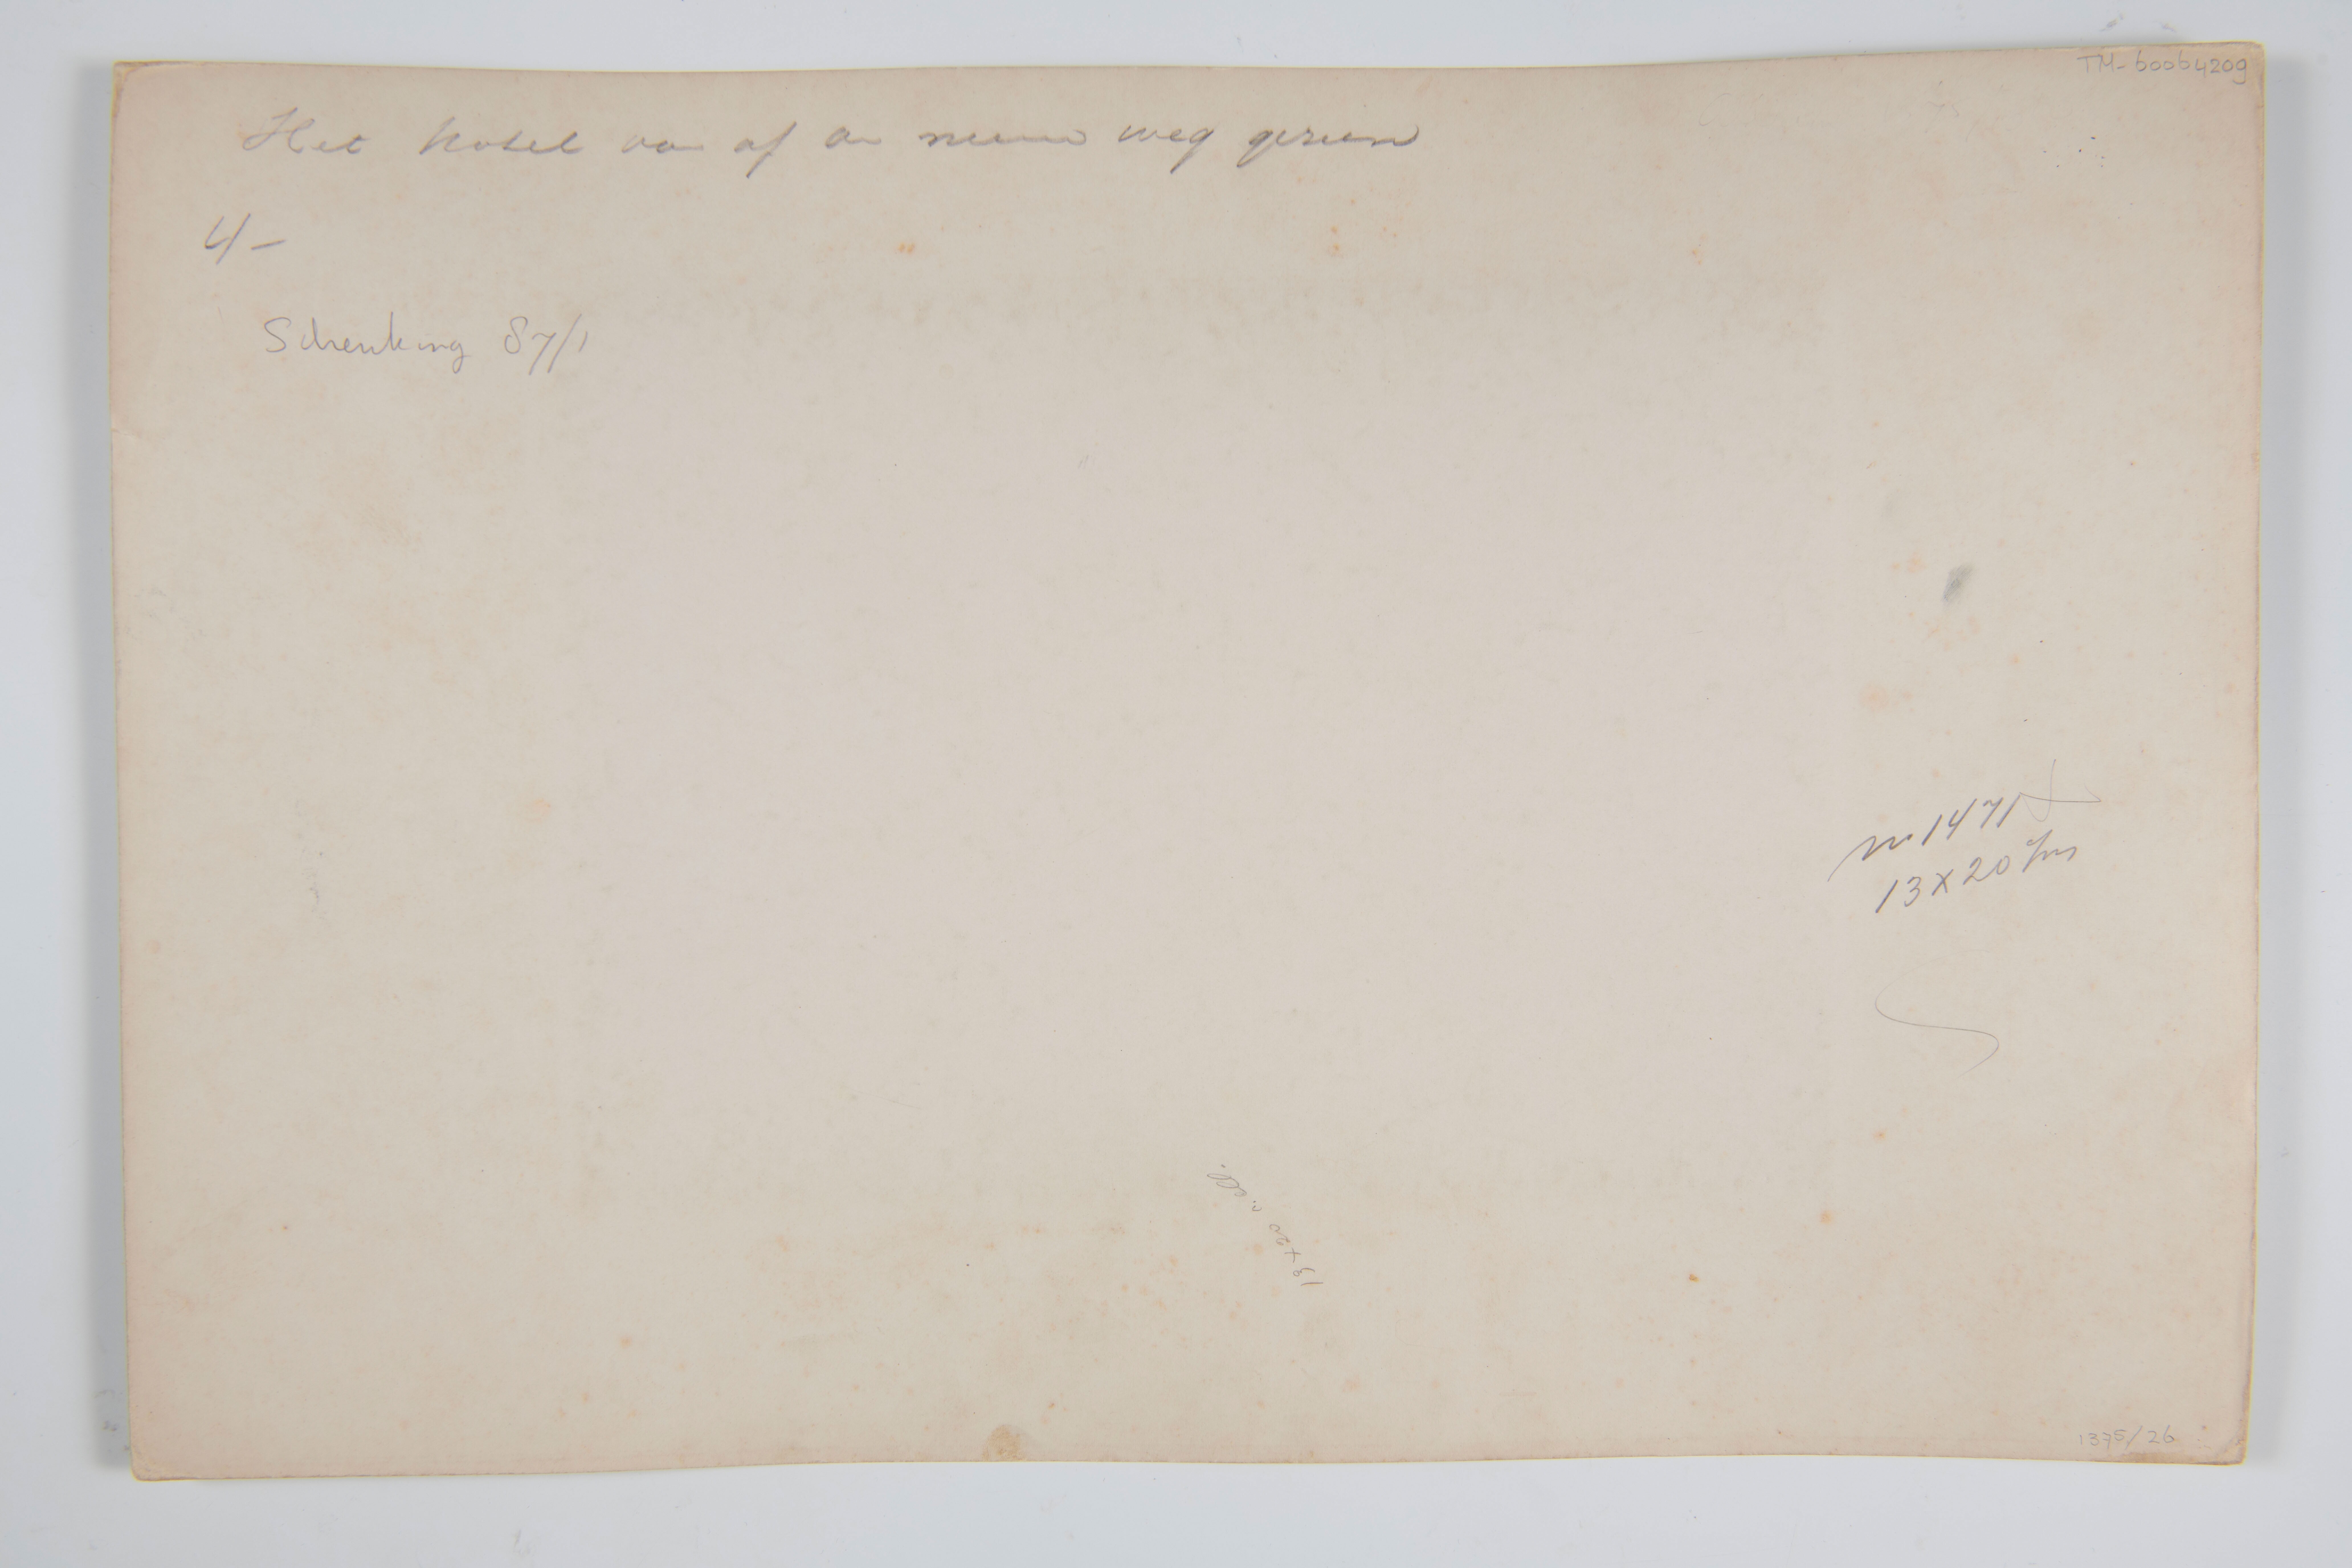 TM-60064209
Het hotel van af de nieuwe weg gezien
4/-
Schenking 87/1
no 1471
13 x 20
13 x 20
1375/26